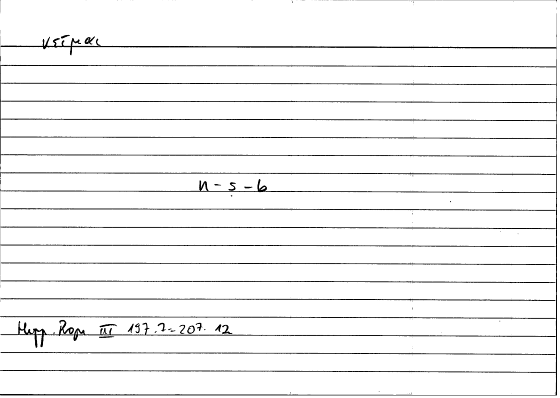 νεῖμαι
n - s - b
Hipp. Progn III 197.7 = 207.12